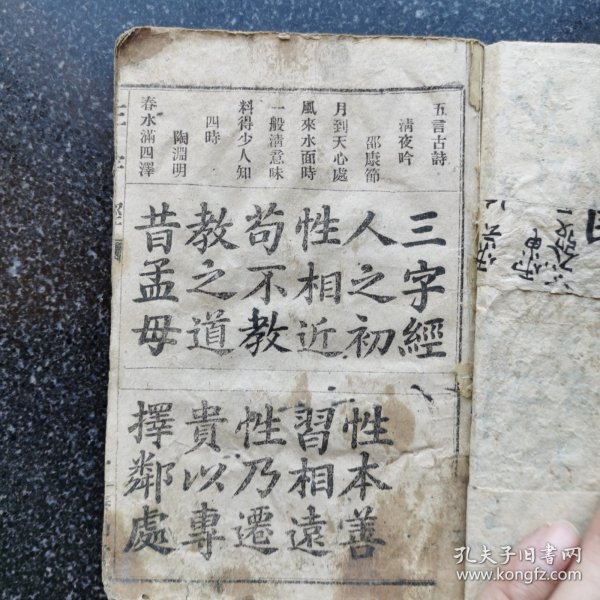 五言古詩
清夜吟
邵康節
月到天心處
風來水面時
一般清意味
料得少人知
四時
陶淵明
春水滿四澤
三字經
人之初
性相近
苟不教
教之道
昔孟母
性本善
習相遠
性乃遷
貴以專
擇鄰處
孔夫子旧书网
www.kongfz.com